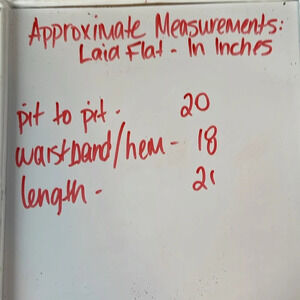 Approximate Measurements:
Laid Flat - In Inches
pit to pit - 20
waistband/hem - 18
length - 21